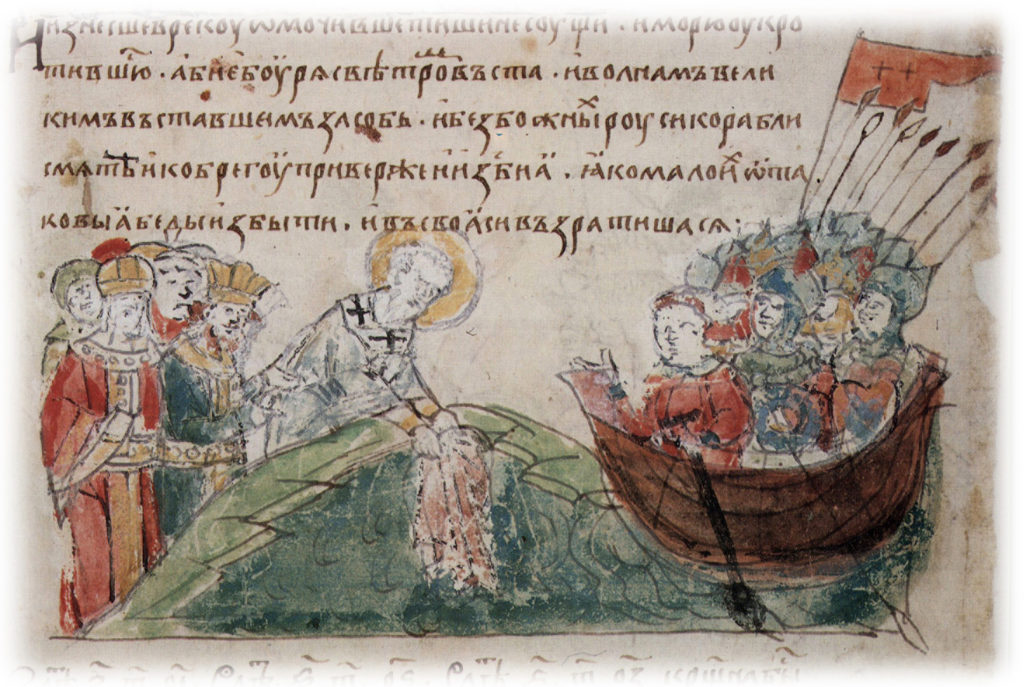 изнесше в рекоу ѡмочивше тишине соущи · и морю оукро
тившюⷭ · абие боурѧ с вѣтромъ въста · и волнамъ вели
кимъ въставшемъ засобь · и безбожныⷯ роуси корабли
смѧте и ко брегоу привержени изби ꙗ · ꙗко мало иⷯ ѿ та
ковыꙗ беды избыти · и въ своꙗси възратишасѧ :